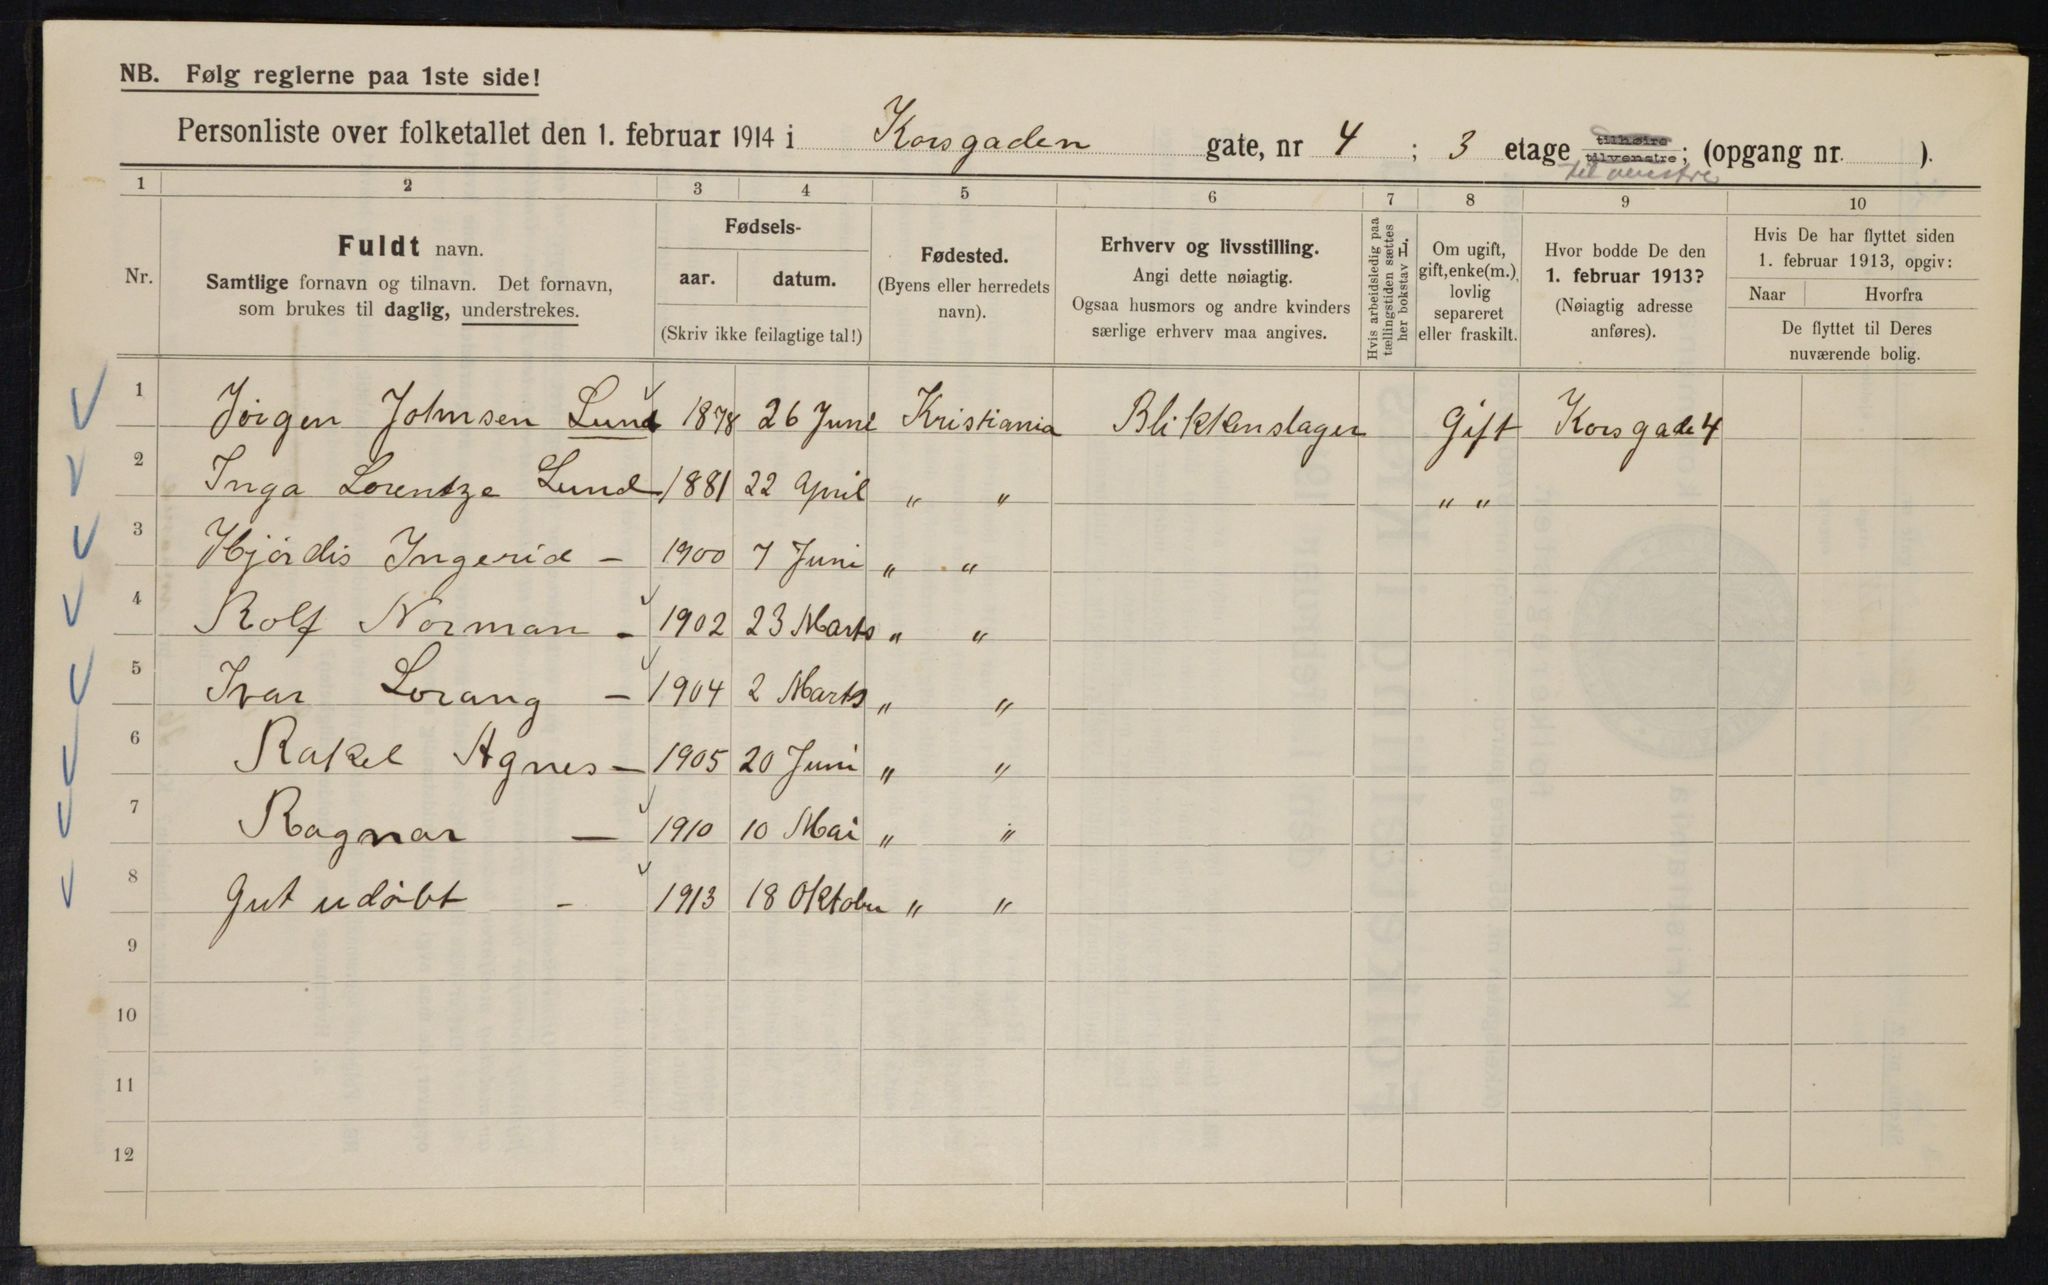 NB. Følg reglerne paa 1ste side!
Personliste over folketallet den 1. februar 1914 i Korsgaden gate, nr 4 ; 3 etage tilhøire tilvenstre; (opgang nr. ).
til venstre
1 2 3 4 5 6 7 8 9 10
Nr.
Fuldt navn.
Samtlige fornavn og tilnavn. Det fornavn,
som brukes til daglig, understrekes.
Fødsels-
aar. datum.
(Skriv ikke feilagtige tal!)
Fødested.
(Byens eller herredets
navn).
Erhverv og livsstilling.
Angi dette nøiagtig.
Ogsaa husmors og andre kvinders
særlige erhverv maa angives.
Hvis arbeidsledig paa
tællingstiden sættes
her bokstav H.
Om ugift,
gift, enke(m.),
lovlig
separeret
eller fraskilt.
Hvor bodde De den
1. februar 1913?
(Nøiagtig adresse
anføres).
Hvis De har flyttet siden
1. februar 1913, opgiv:
Naar Hvorfra
De flyttet til Deres
nuværende bolig.
1 Jørgen Johnsen Lund 1878 26 Juni Kristiania Blikkenslager Gift Korsgade 4
2 Inga Lorentze Lund 1881 22 April " " " "
3 Hjørdis Ingerid – 1900 7 Juni " "
4 Rolf Norman – 1902 23 Marts " "
5 Ivar Lorang – 1904 2 Marts " "
6 Rakel Agnes – 1905 20 Juni " "
7 Ragnar — 1910 10 Mai " "
8 Gut udøbt – 1913 18 Oktober " "
9
10
11
12